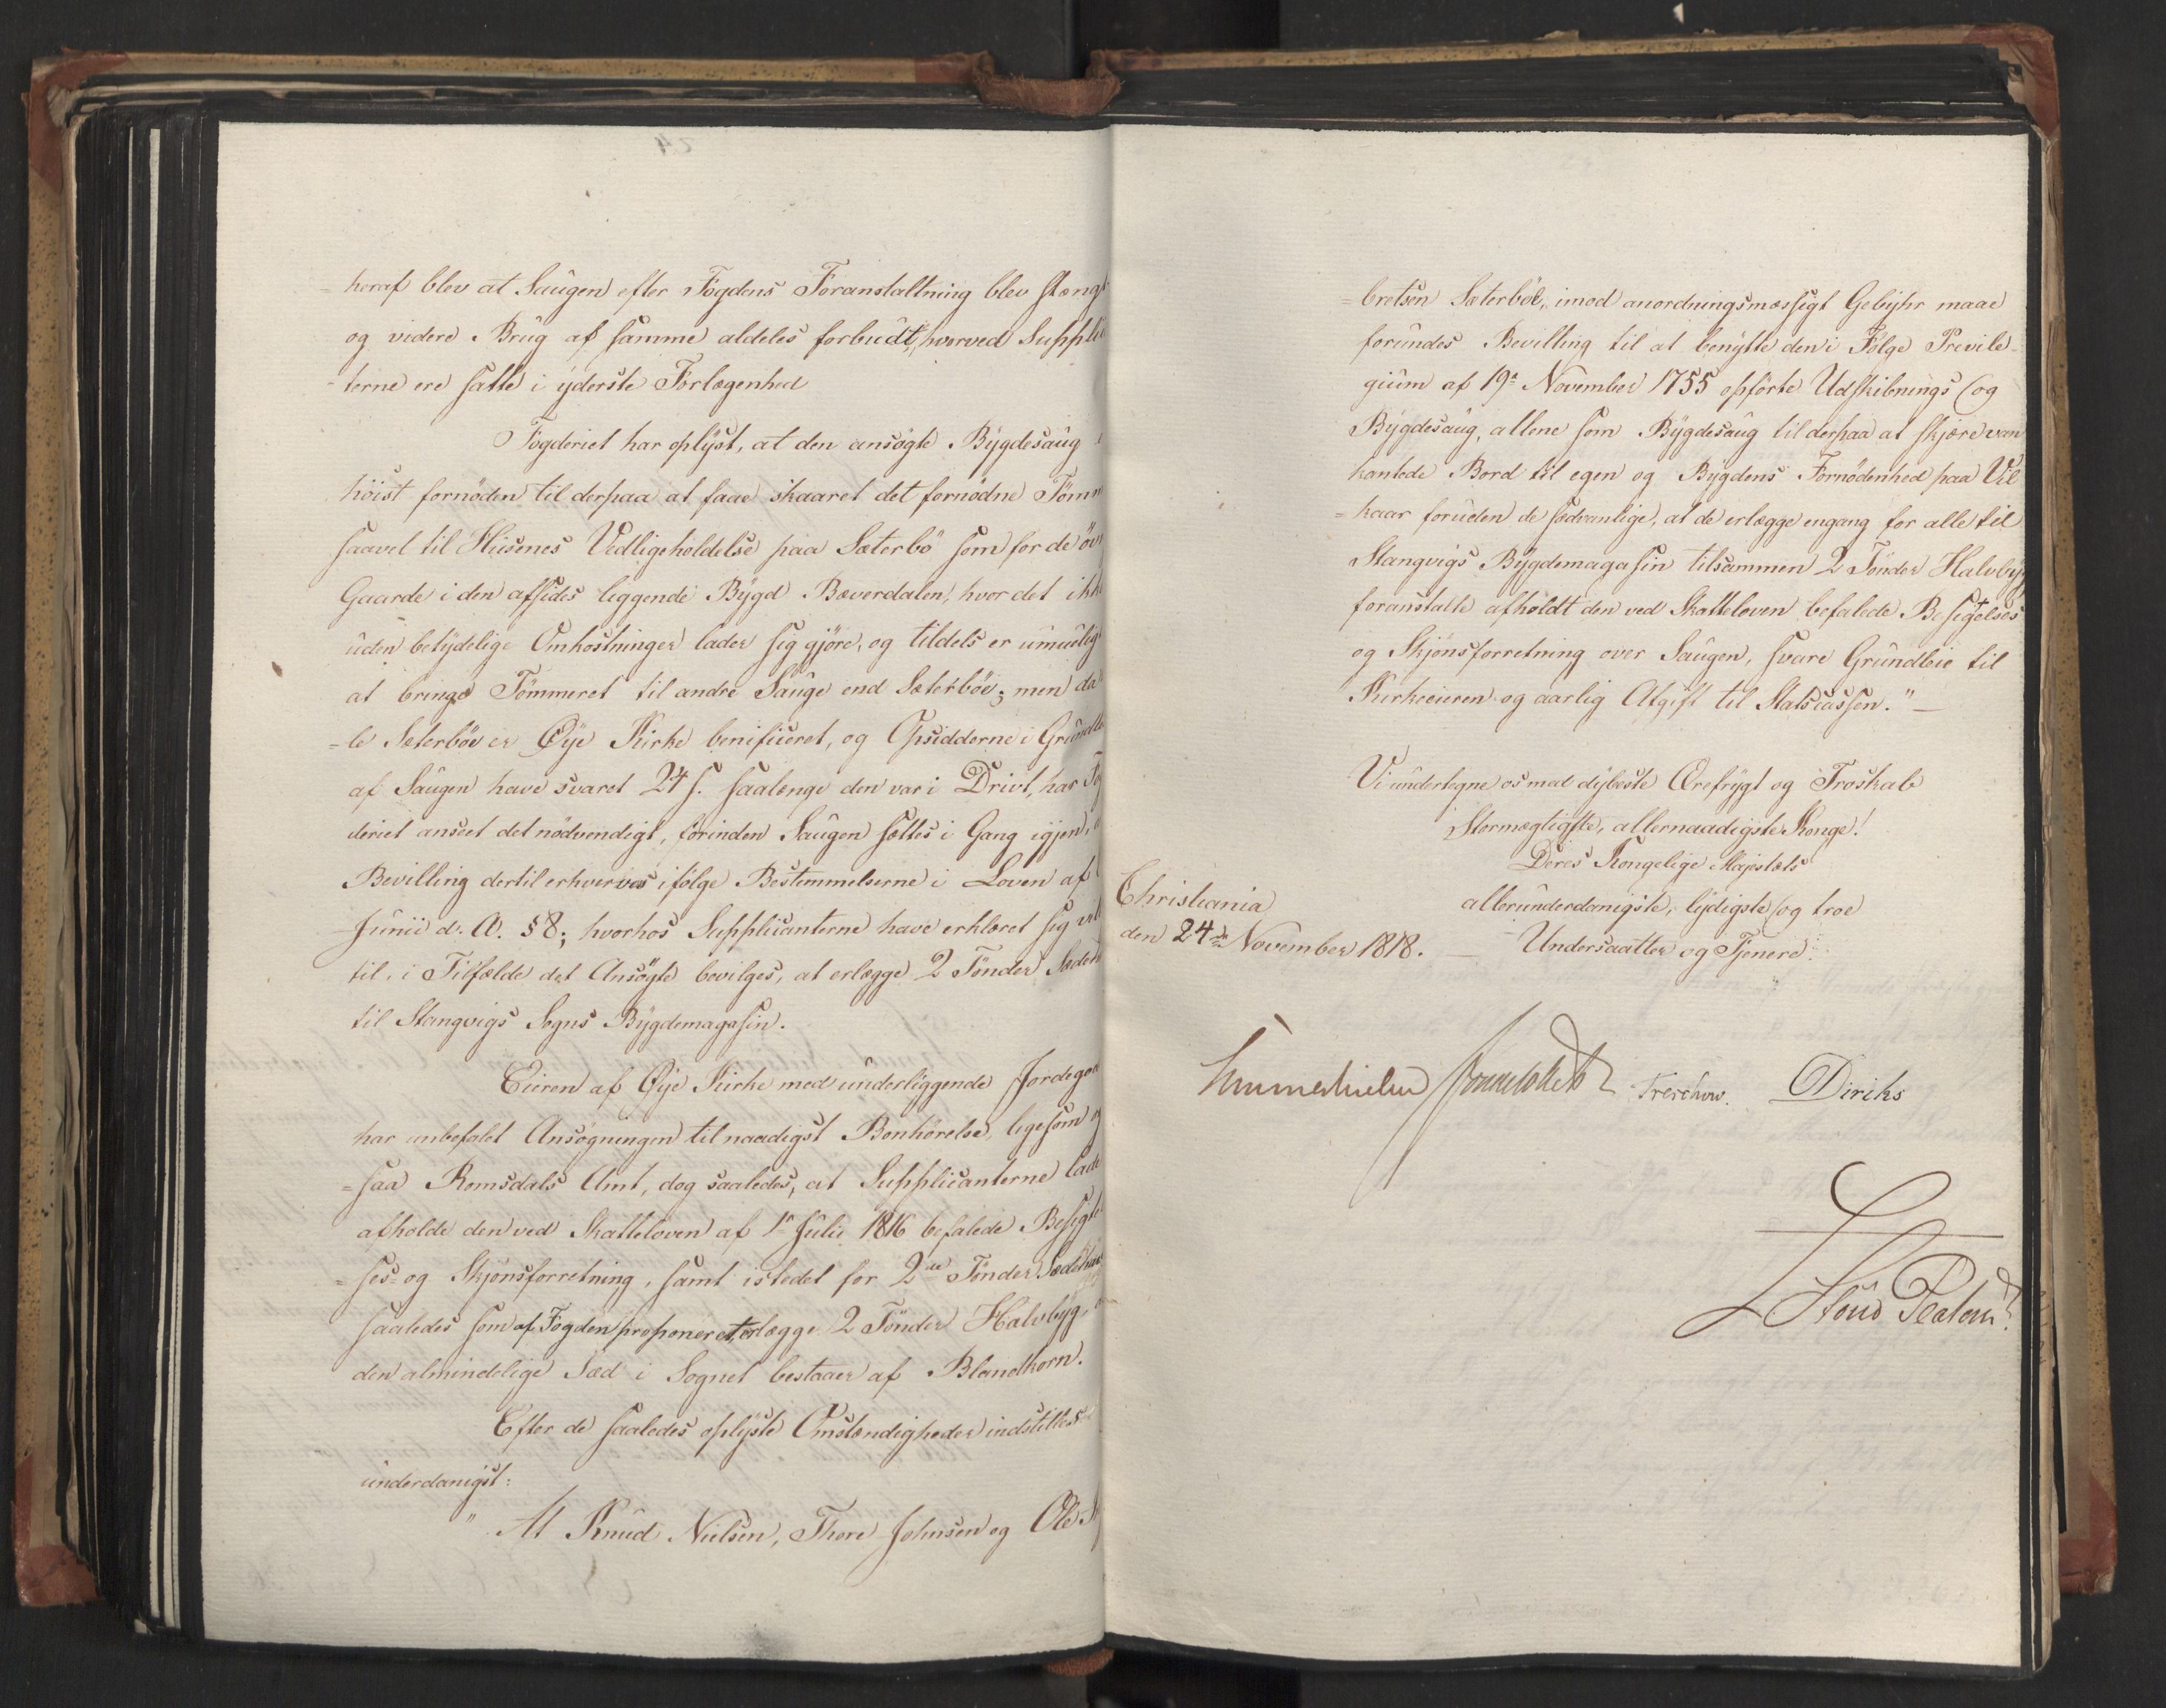 =heraf blev at Saugen efter Fogdens Foranstaltning blev stængt
og videre Brug af samme aldeles forbudt, hvorved Supplic
=terne ere satte i yderste Forlegenhed
Fogderiet har oplyst, at den ansøgte Bygdesaug
høist fornøden til derpaa at faae skaaret det fornødne Tømm
saavel til Husenes Vedligeholdelse paa Sæterbø som for de øv
Gaarde i den afsides liggende Bygd Bæverdalen, hvor det ikk
uden betydelige Omkostninger lader sig gjøre, og tildels er umuelig
at bringe Tømmeret til andre Sauge end Sæterbøe; men da
=le Sæterbøe er Øye Kirke benificeret, og Opsidderne i Grundle
af Saugen have svaret 24 s. saalænge den var i Drivt, har Fog
deriet anseet det nødvendigt, forinden Saugen sættes i Gang igjen,
Bevilling dertil erhverves ifølge Bestemmelserne i Loven af
Junii d. A. § 8; hvorhos Supplicanterne have erklæret sig vil
til, i Tilfælde det Ansøgte bevilges, at erlægge 2 Tønder Sæde
til Stangvigs Sogns Bygdemagasin.
Eieren af Øye Kirke med underliggende Jordego
har anbefalet Ansøgningen til naadigst Bønhørelse, ligesom og
=saa Romsdals Amt, dog saaledes, at Supplicanterne lade
afholde den ved Skatteloven af 1ste Julii 1816 befalede Besigtel
=ses- og Skjønsforretning, samt istedet for 2de Tønder Sædeko
saaledes som af Fogden proponeret, erlægge 2 Tønder Halvbyg,
den almindelige Sæd i Sognet bestaaer af Blandkorn.
Efter de saaledes oplyste Omstændigheder indstilles
underdanigst:
"At Knud Nielsen, Thore Johnsen og Ole
=bretsen Sæterbøe, imod anordningsmæssigt Gebyhr maae
forundes Bevilling til at benytte den i Følge Previle-
gium af 19de November 1755 opførte Udskibnings (og
Bygdesaug, allene som Bygdesaug til derpaa at skjære van
kantede Bord til egen og Bygdens Fornødenhed paa Vil
=kaar foruden de sædvanlige, at de erlægge engang for alle til
Stangvigs Bygdemagasin tilsammen 2 Tønder Halvbyg,
foranstalte afholdt den ved Skatteloven befalede Besigtelses
og Skjønsforretning over Saugen, svare Grundleie til
Kirkeeieren og aarlig Afgift til Statscassen."—
Vi undertegne os med dybeste Ærefrygt og Troskab
Stormægtigste, allernaadigste Konge!
Deres Kongelige Majestæts
allerunderdanigste, lydigste (og troe
Christiania
den 24de November 1818. — Undersaatter og Tjenere.
Sommerhielm Treschow. Diriks